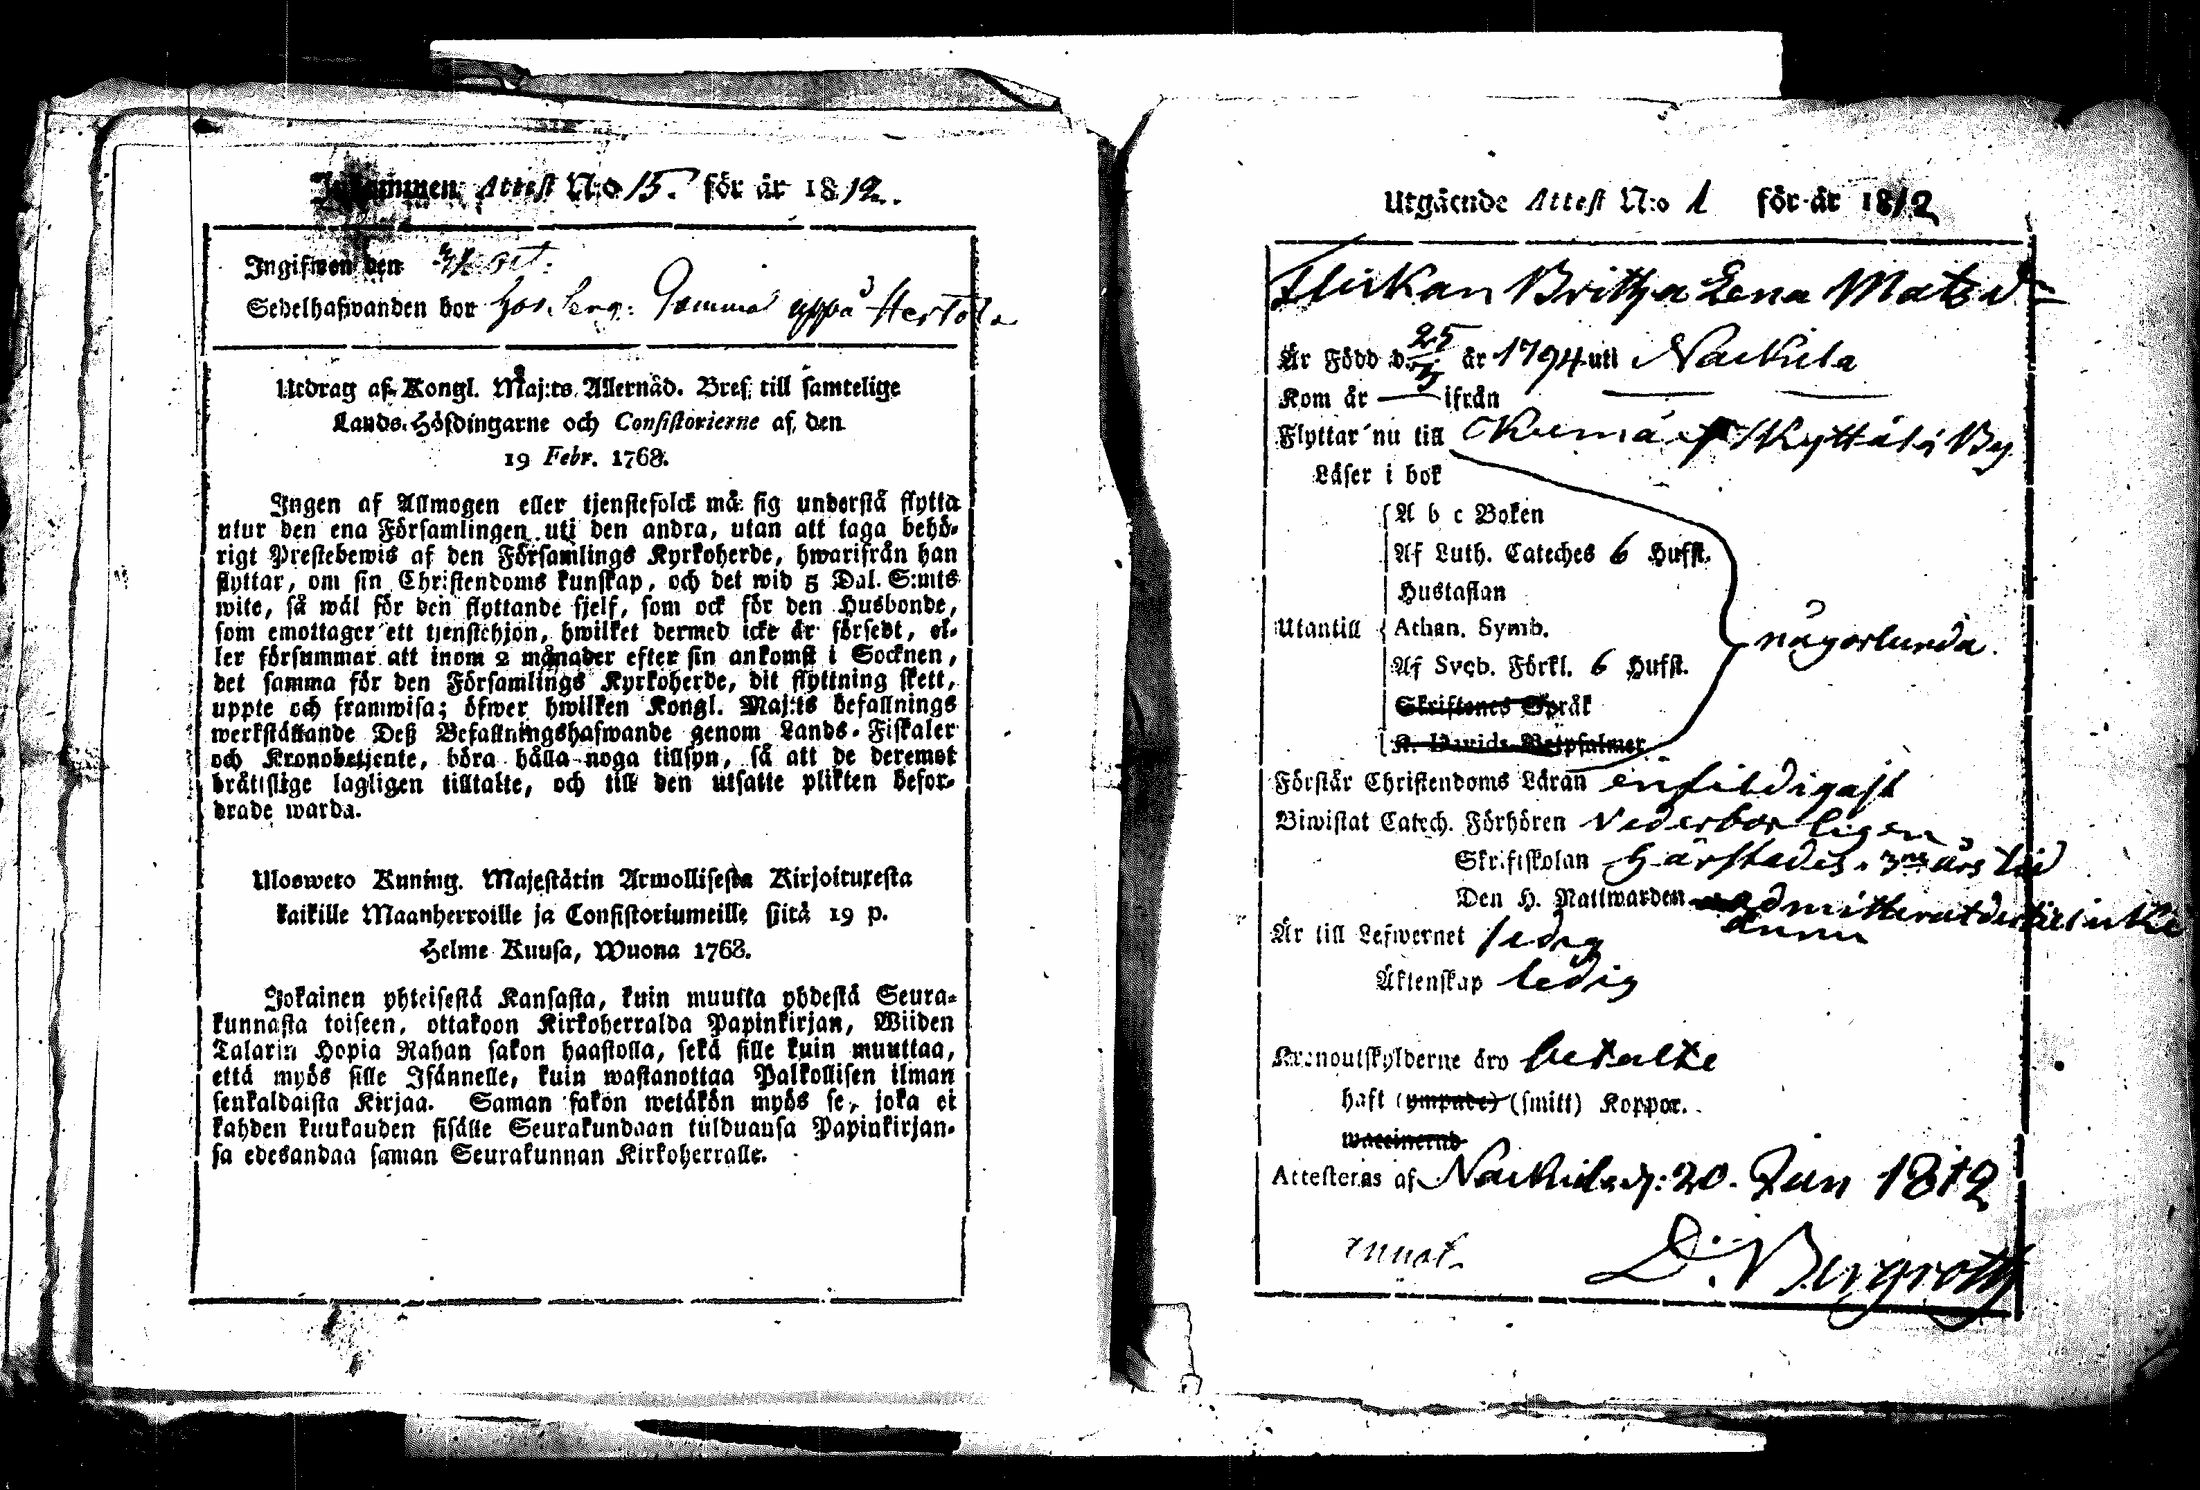 Inkommen Attest N:o 15. för år 1812.
Ingifwen den
Sedelhafwanden bor hos uppå Hertola
Utdrag af Kongl. Maj:ts Allernåd. Bref till samtelige
Lands-Höfdingarne och Consistorierne af den
19 Febr. 1768.
Ingen af Allmogen eller tjenstefolck må sig understå flytta
utur den ena Församlingen uti den andra, utan att taga behö-
rigt Prestebewis af den Församlings Kyrkoherde, hwarifrån han
flyttar, om sin Christendoms kunskap, och det wid 5 Dal. S:mts
wite, så wäl för den flyttande sjelf, som ock för den Husbonde,
som emottager ett tjenstehjon, hwilket dermed icke är försedt, el-
ler försummar att inom 2 månader efter sin ankomst i Socknen,
det samma för den Församlings Kyrkoherde, dit flyttning skett,
uppte och framwisa; öfwer hwilken Kongl. Maj:ts befallnings
werkställande Deß Befallningshafwande genom Lands-Fiskaler
och Kronobetjente, böra hålla noga tillsyn, så att de deremot
brätislige lagligen tilltalte, och till den utsatte plikten befor-
drade warda.
Ulosweto Kuning. Majestätin Armollisesta Kirjoituxesta
kaikille Maanherroille ja Consistoriumeille siitä 19 p.
Helme Kuusa, Wuona 1768.
Jokainen yhteisestä Kansasta, kuin muutta yhdestä Seura-
kunnasta toiseen, ottakoon Kirkoherralda Papinkirjan, Wiiden
Talarin Hopia Rahan sakon haastolla, sekä sille kuin muuttaa,
että myös sille Isännelle, kuin wastanottaa Palkollisen ilman
senkaldaista Kirjaa. Saman sakon wetäkön myös se, joka ei
kahden kuukauden sisälle Seurakundaan tulduansa Papinkirjan-
sa edesandaa saman Seurakunnan Kirkoherralle.
Utgående Attest N:o 1 för år 1812
Flickan Britha Lena Matsd:
Är Född d. 25/5 år 1794 uti Nackila
Kom år — ifrån — —
Flyttar nu till Kumå Kyttälä By
Läser i bok
A b c Boken
Af Luth. Cateches 6 Hufst.
Hustaflan
Utantill Athan. Symb. någorlunda.
Af Sveb. Förkl. 6 Hufst.
Skriftenes Språk
K. Davids Botpsalmer
Förstår Christendoms Läran enfaldigast
Biwistat Catech. Förhören vederbörligen
Skriftskolan härstädes i 3ne års tid
Den H. Nattwarden admitterat dertil inke
ännu
Är till Lefwernet ledig
Äktenskap ledig
Kronoutskylderne äro betalte
haft (ympade) (smitt) Koppor.
waccinerad
Attesteras af Nackila d: 20. Jun 1812
D. Bergroth